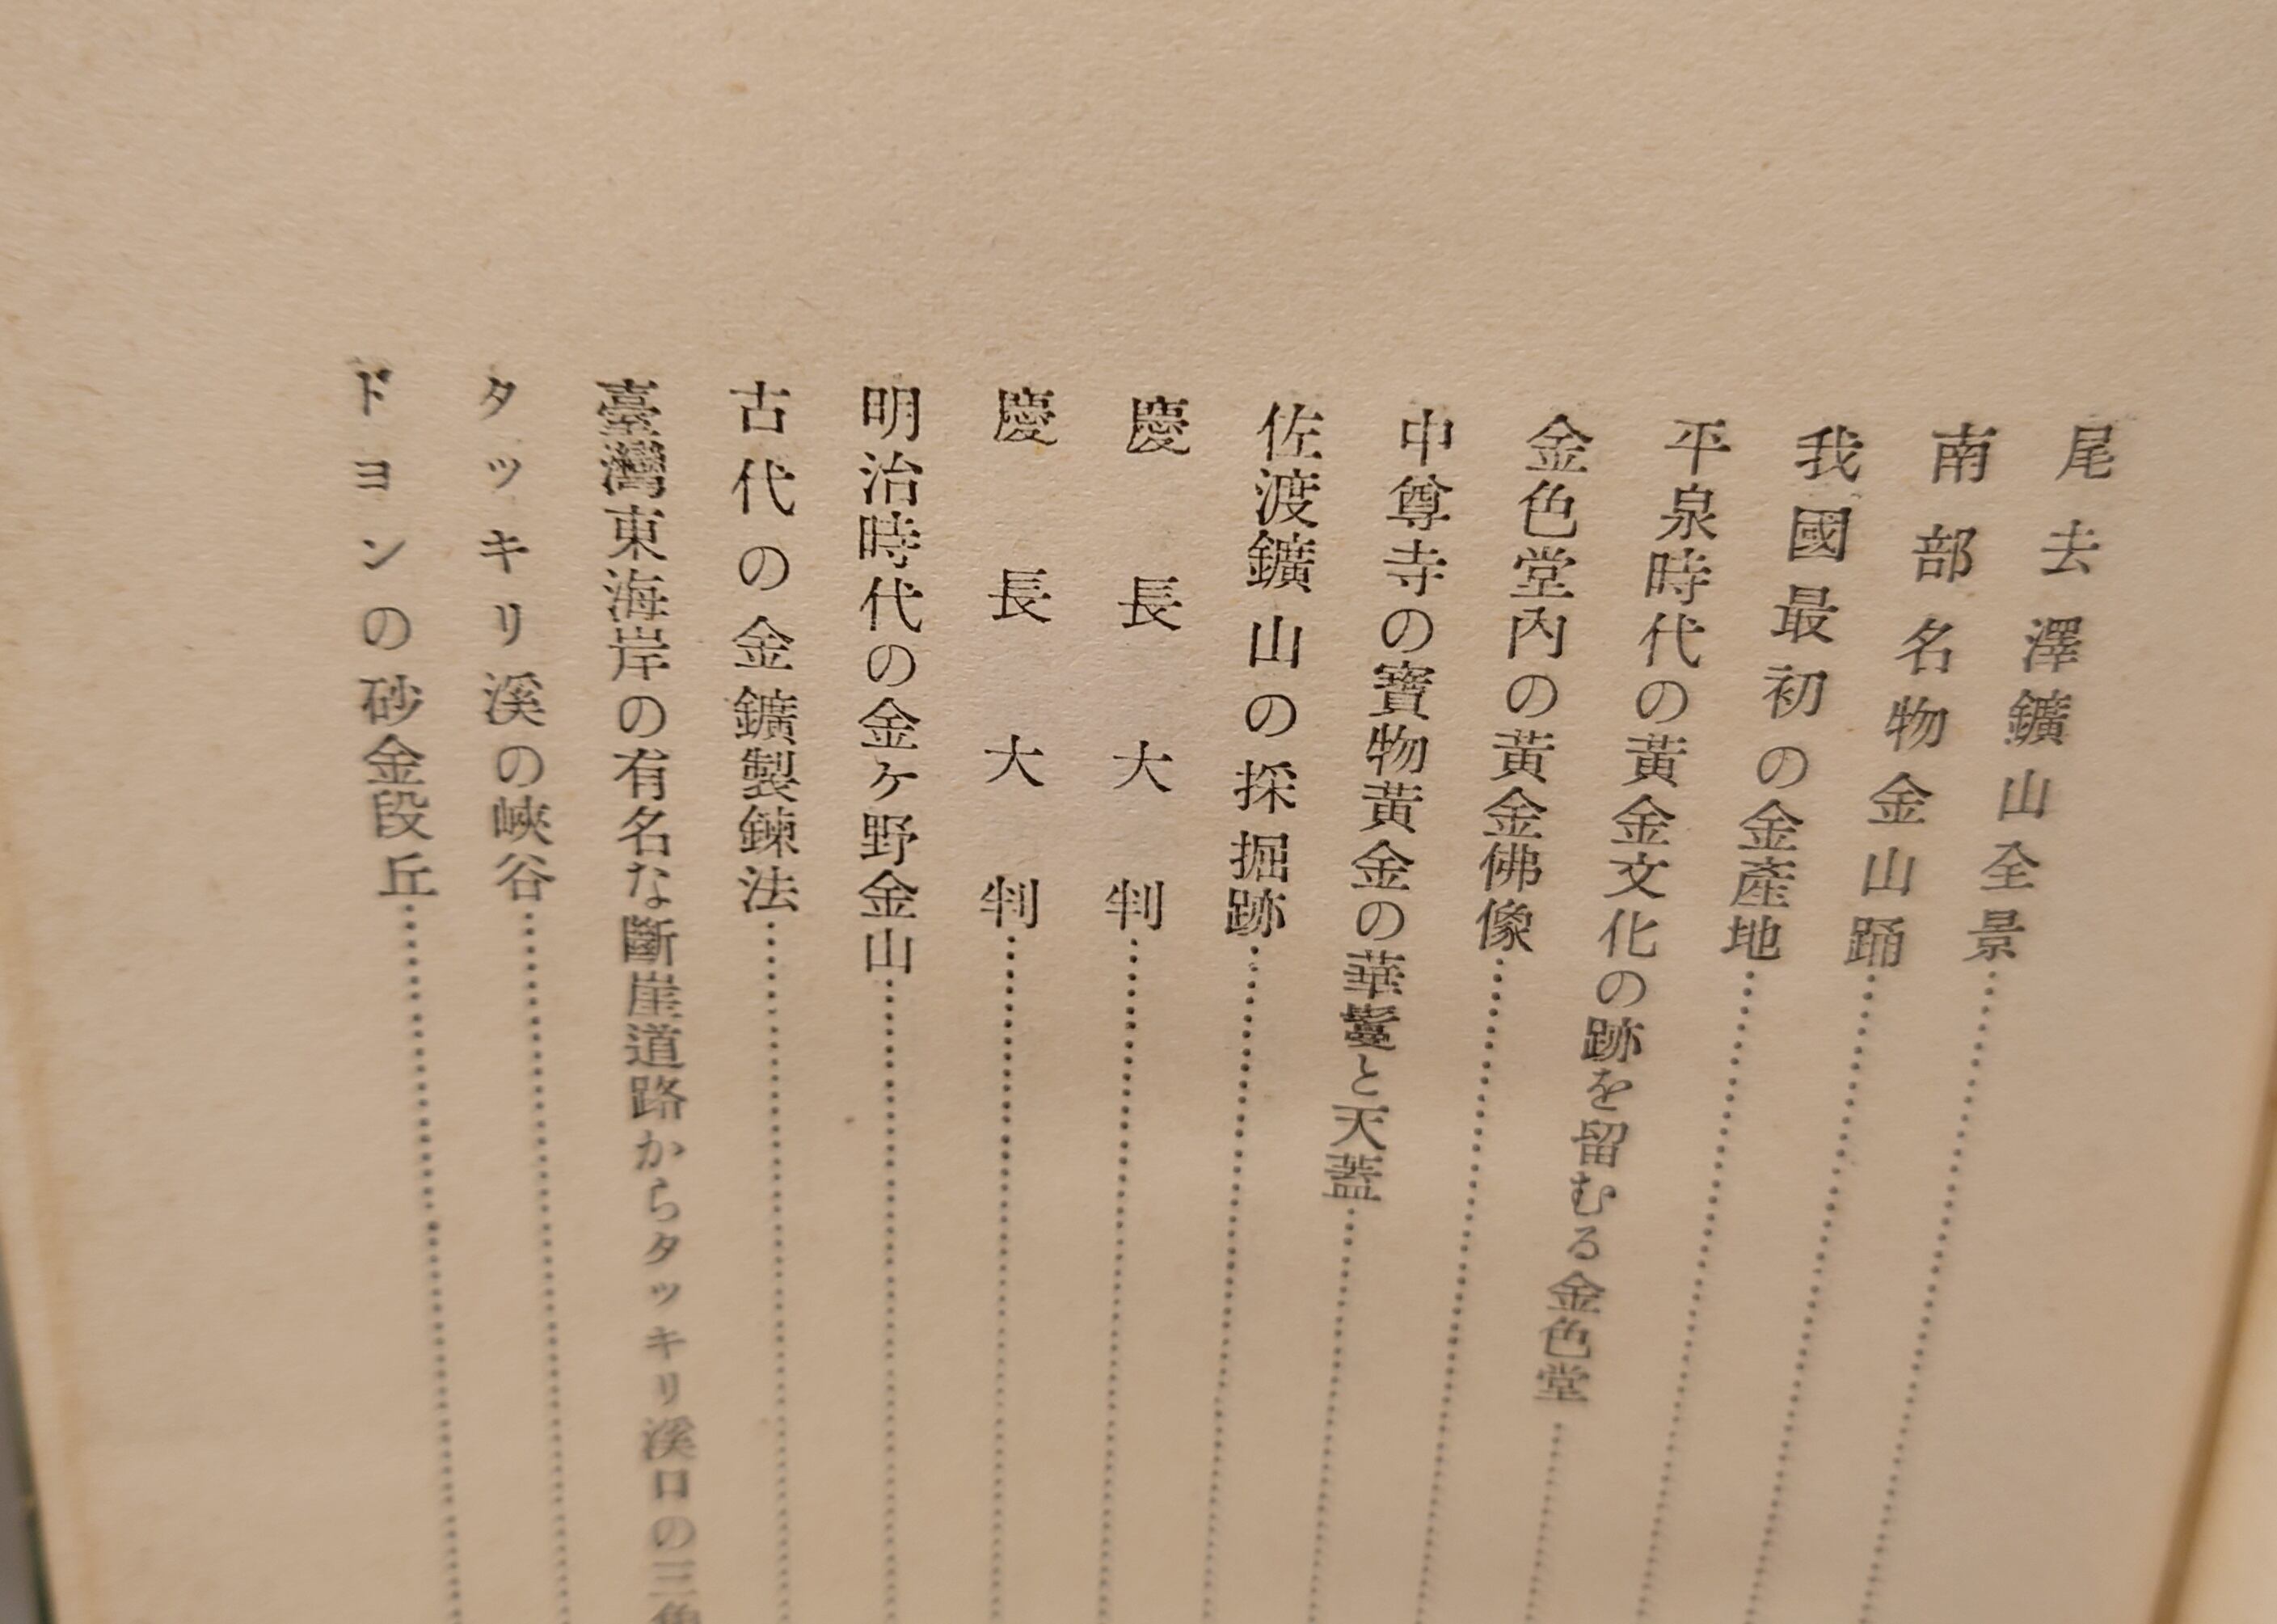 尾去澤鑛山全景
南部名物金山踊
我國最初の金產地
平泉時代の黃金文化の跡を留むる金色堂
金色堂內の黃金佛像
中尊寺の寶物黃金の華鬘と天蓋
佐渡鑛山の採掘跡
慶長大判
慶長大判
明治時代の金ヶ野金山
古代の金鑛製鍊法
臺灣東海岸の有名な斷崖道路からタッキリ溪口の三角
タッキリ溪の峽谷
ドヨンの砂金段丘